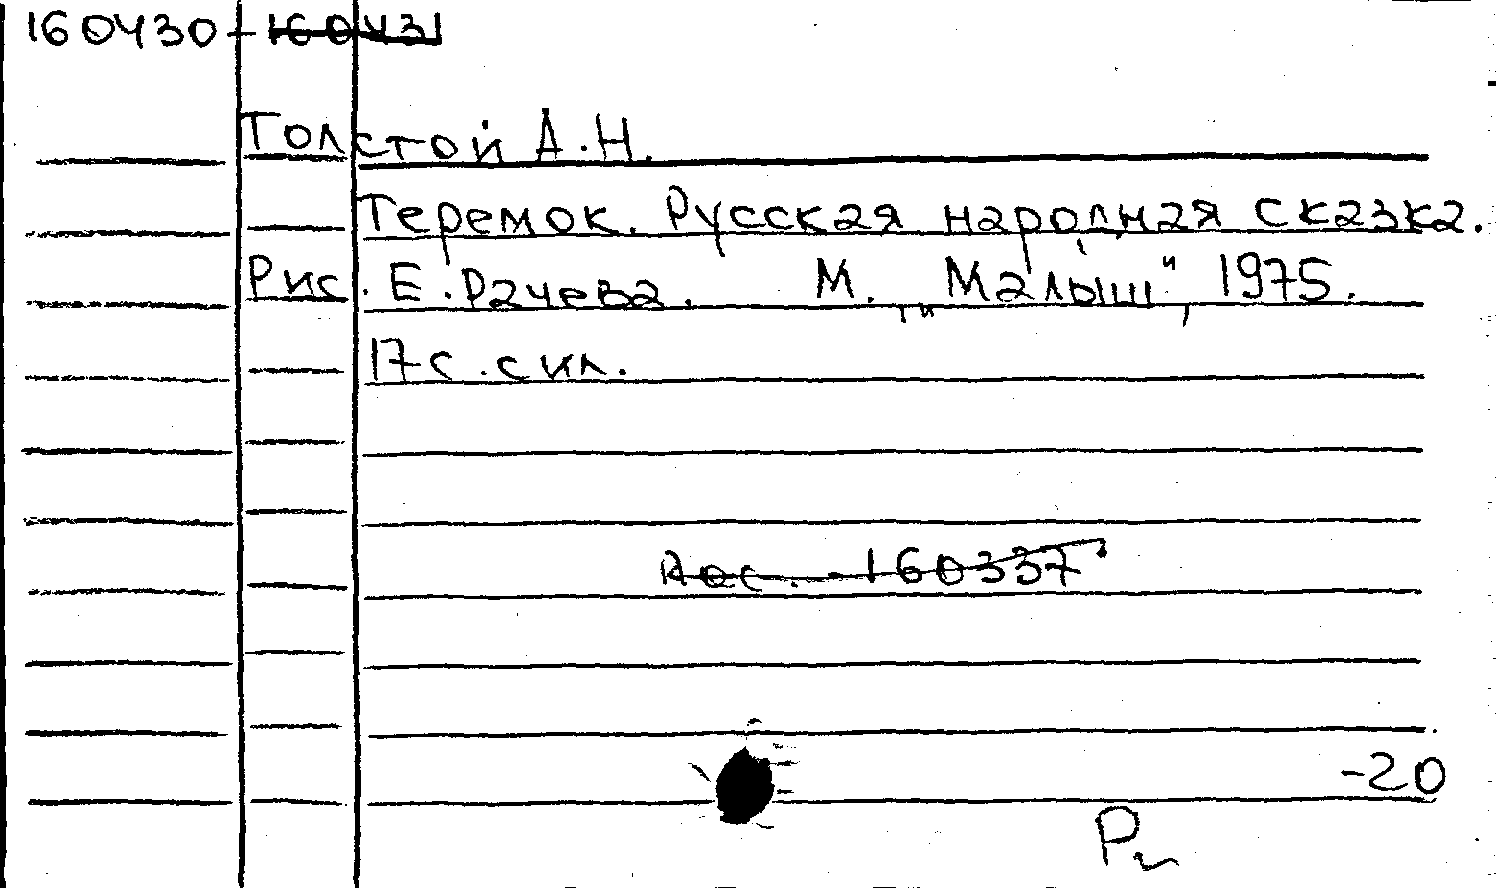 160430 - 160431
Толстой А.Н.
Теремок. Русская народная сказка.
Рис. Е. Рачева. М. „Малыш", 1975.
17 с. с ил.
160337
-20